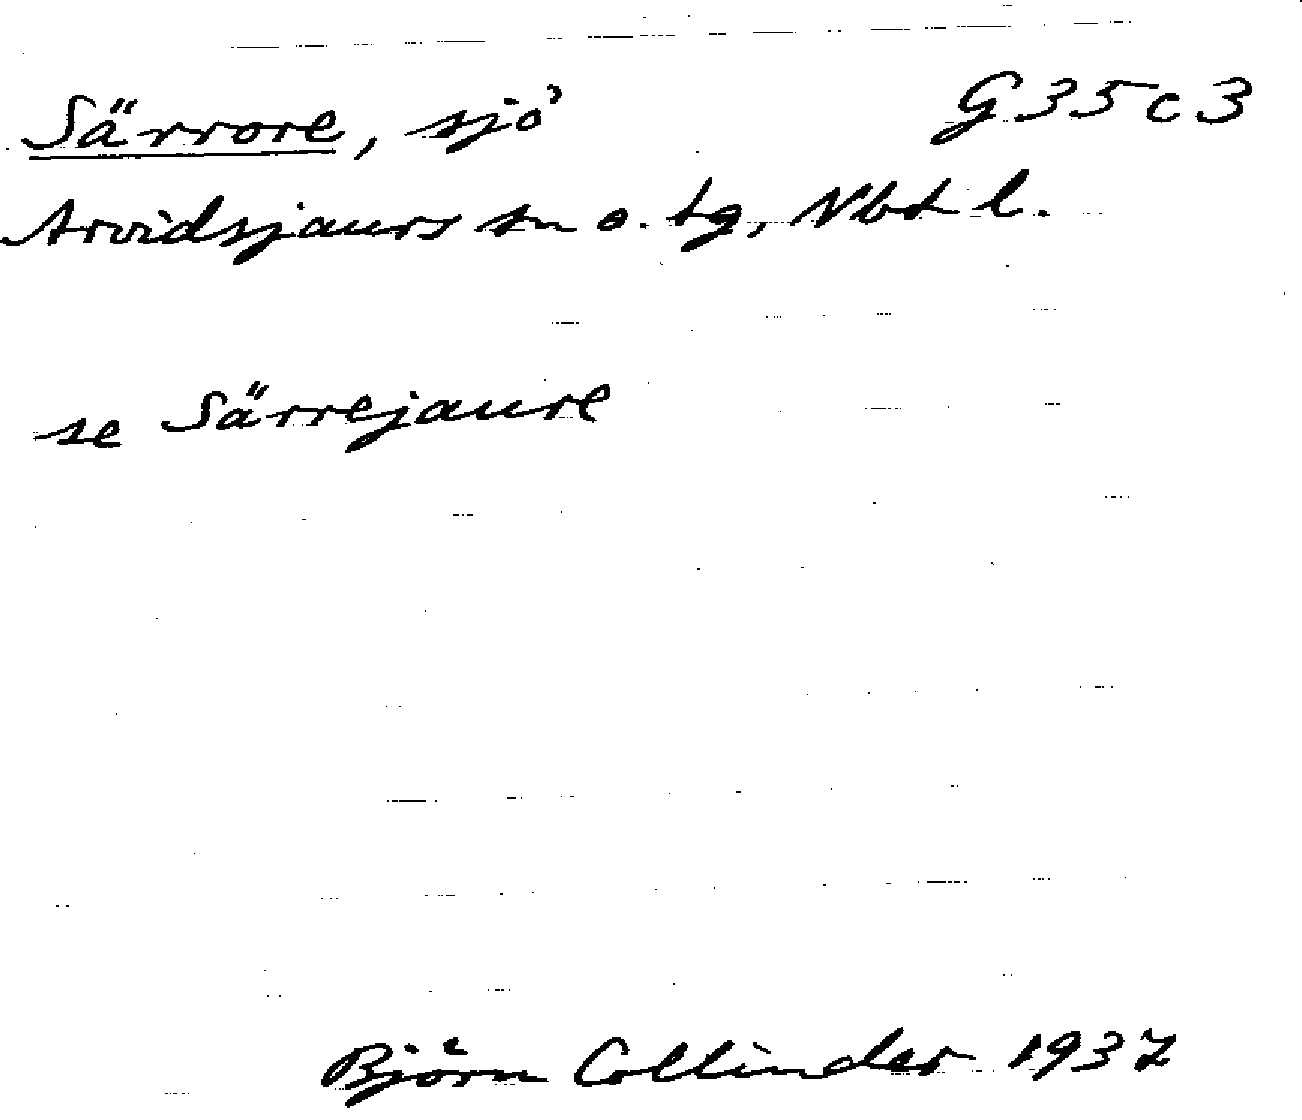 Särrore, sjö G35c3
Arvidsjaurs sn o. tg, Nbt l.
se Särrejaure
Björn Collinder 1937